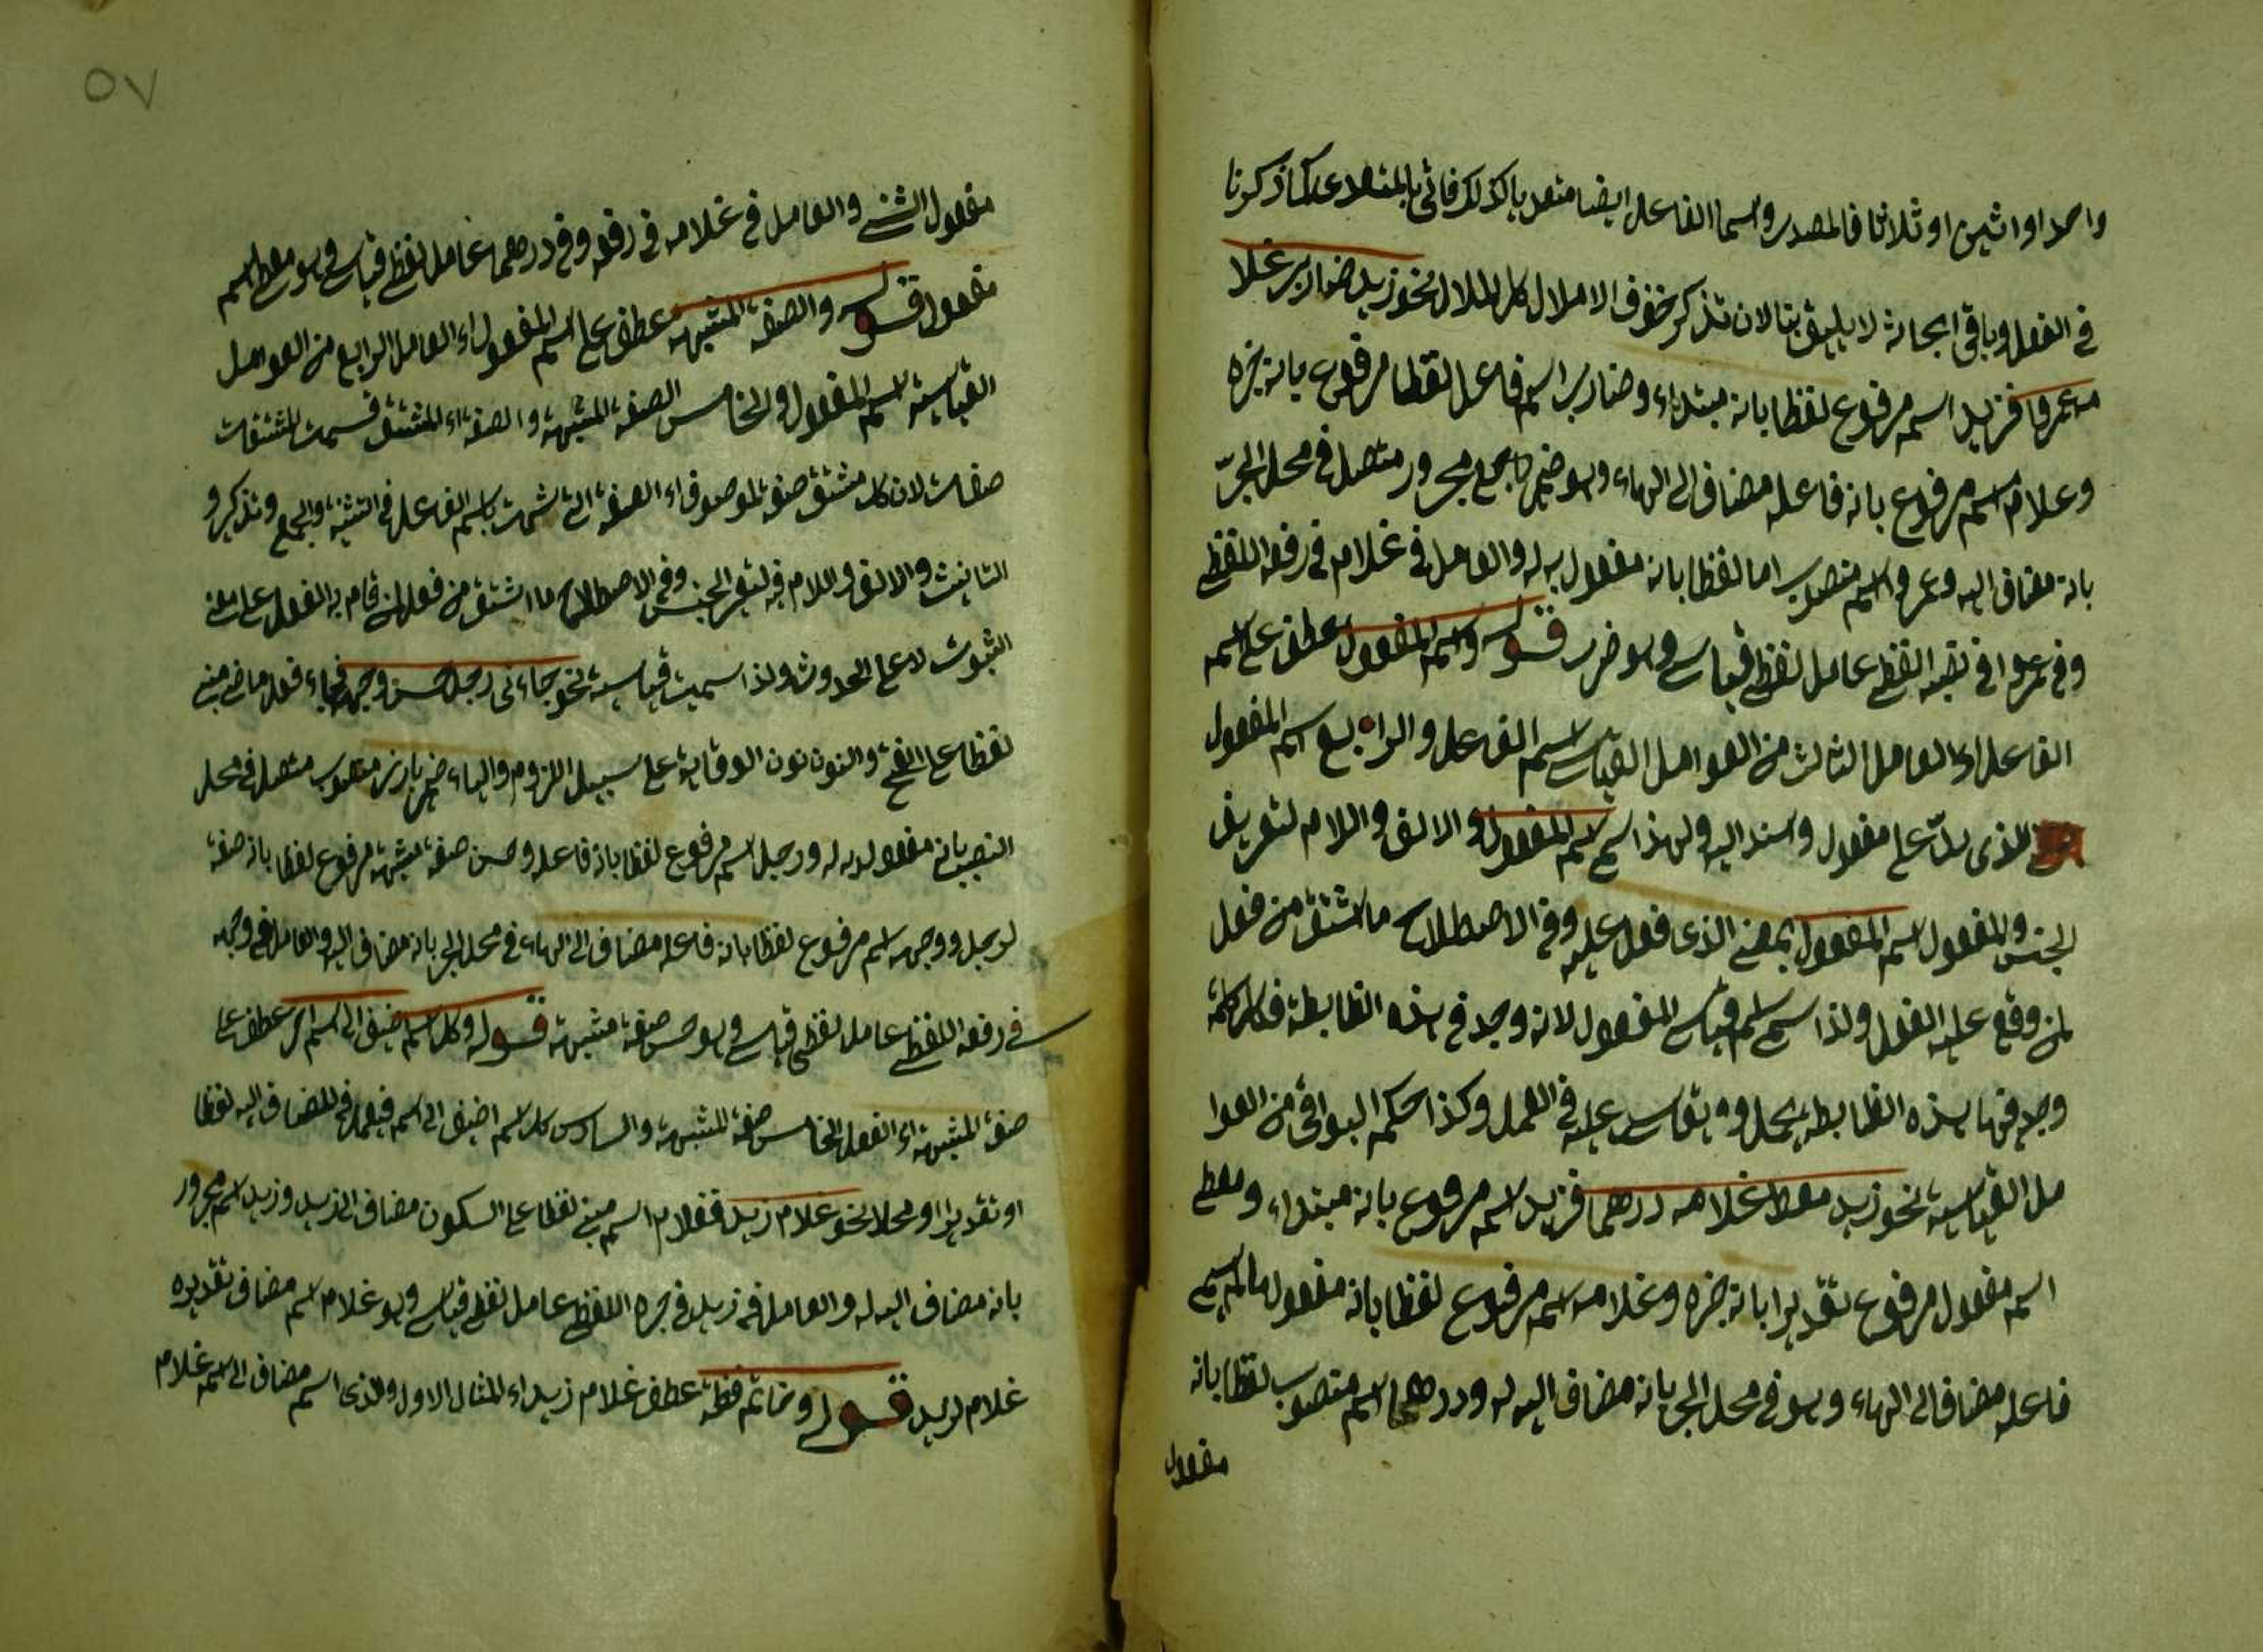 واحدا او اثنين او ثلاثا فالمصدر واسما الفاعل ايضا متعديا كذلك فائى بالمتعد على ما ذكرنا
في الفعل وباقى ابحاثه لا يليق بنا الان تذكر خفف الاملال كل الملال نحو زيد ضارب غلا
مه عمروا فزيد اسم مرفوع لفظا بانه مبتداء وضارب اسم فاعل لفظا مرفوع بانه خبره
وغلام اسم مرفوع بانه فاعله مضاف الى الهاء وهو ضمير مجرور متصل في محل الجرّ
بانه مضاف اليه وعمروا اسم منصوب اما لفظا بانه مفعول به له والعامل في غلام في رفعه اللفظي
وفي عمروا في نصبه اللفظي عامل لفظي قياسي وهو ضارب قوله واسم المفعول عطف على اسم
الفاعل اى العامل الثالث من العوامل القياسى اسم الفاعل والرابع اسم المفعول
الذى يدلّ على مفعول واسند اليه ولهذا سمى اسم المفعول والالف واللام لتعريف
الجنس والمفعول اسم المفعول بمعنى الذى فعل عليه وفي الاصطلاح ما اشتق من فعل
لمن وقع عليه الفعل ولذا سمى اسم قياسى المفعول لانه وجد في هذه الظابطة فكل كلمة
وجد فيها هذه الظابطه يعمل ويقاس عليه في العمل وكذا حكم البواقى من العوا
مل القياسية نحو زيد معط غلامه درهما فزيد اسم مرفوع بانه مبتداء ومعط
اسم مفعول مرفوع تقديرا بانه خبره وغلامه اسم مرفوع لفظا بانه مفعول مالم يسم
فاعله مضاف الى الهاء وهو في محل الجر بانه مضاف اليه له ودرهما اسم منصوب لفظا بانه
مفعول
٥٧
مفعول الثنى والعامل في غلامه في رفعه وفي درهما عامل لفظي قياسى وهو معط اسم
مفعول قوله والصفة المشبهة عطف على اسم المفعول اى العامل الرابع من العوامل
القياسية اسم المفعول والخامس الصفة المشبهة والصفة اى المشتق قسمت المشتقات
صفات لان كل مشتق صفة لموصوف اى الصفة التى شبهت باسم الفاعل في التثنية والجمع وتذكير و
التانيث والالف واللام فيه لتعريف الجنس وفي الاصطلاح ما اشتق من فعل لمن قام به الفعل على معنى
الثبوت لا على الحدوث ولذا سميت قياسية نحو جاءنى رجل حسن وجهه فجاء فعل ماضى مبنى
لفظا على الفتح والنون نون الوقاية على سبيل اللزوم والياء ضمير بارز منصوب متصل في محل
النصب بانه مفعول به له ورجل اسم مرفوع لفظا بانه فاعله وحسن صفة مشبهة مرفوع لفظا بانه صفة
لرجل ووجهه اسم مرفوع لفظا بانه فاعله مضاف الى الهاء في محل الجر بانه مضاف اليه والعامل في وجهه
في رفعه اللفظي عامل لفظى قياسى وهو حسن صفة مشبهة قوله وكل اسم اضيف الى اسم اخر عطف على
صفة المشبهة اى الفعل الخامس صفة المشبهة والسادس كل اسم اضيف الى اسم فيعمل في المضاف اليه لفظا
او تقديرا او محلا نحو غلام زيد فغلام اسم مبنى لفظا على السكون مضاف الى زيد وزيد اسم مجرور
بانه مضاف اليه له والعامل في زيد في جره اللفظي عامل لفظى قياسى وهو غلام اسم مضاف تقديره
غلام لزيد قوله وخاتم فضة عطف غلام زيد اى المثال الاول والذى اسم مضاف الى اسم غلام